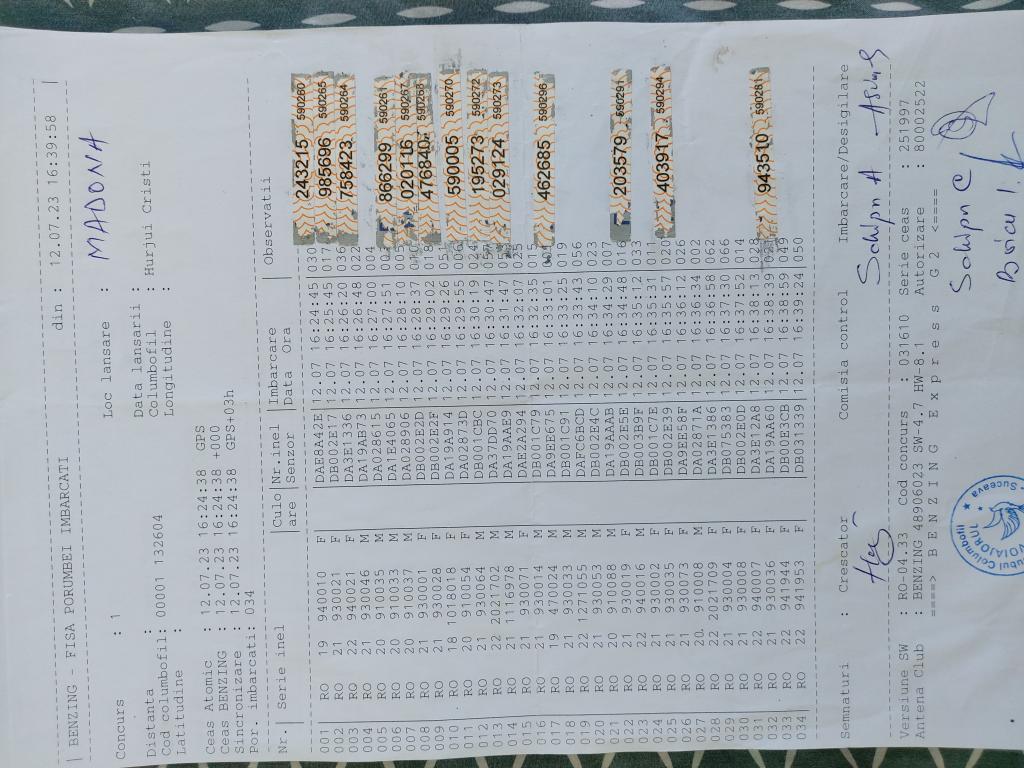 | BENZING - FISA PORUMBEI IMBARCATI din : 12.07.23 16:39:58 |
Concurs : 1 Loc lansare : MADONA
Distanta : Data lansarii :
Cod columbofil: 00001 132604 Columbofil : Hurjui Cristi
Latitudine : Longitudine :
Ceas Atomic : 12.07.23 16:24:38 GPS
Ceas BENZING : 12.07.23 16:24:38 +000
Sincronizare : 12.07.23 16:24:38 GPS+03h
Por. imbarcati: 034
Nr. | Serie inel |Culo |Nr.inel |Imbarcare |Observatii
|are |Senzor |Data Ora |
001 RO 19 940010 F DAE8A42E 12.07 16:24:45 030 243215 590260
002 RO 21 930021 F DB002E17 12.07 16:25:45 017 985696 590265
003 RO 22 940021 F DA3E1336 12.07 16:26:20 036 758423 590264
004 RO 21 930046 M DA19AB73 12.07 16:26:48 022
005 RO 20 910035 M DA028615 12.07 16:27:00 004
006 RO 20 910033 M DA1E4065 12.07 16:27:51 866299 590261
007 RO 20 910037 M DA028906 12.07 16:28:10 005 020116
008 RO 21 930001 F DB002E2D 12.07 16:28:37 476840
009 RO 21 930028 F DB002E2F 12.07 16:29:02 018
010 RO 18 1018018 F DA19A914 12.07 16:29:26 590005 590270
011 RO 20 910054 F DA02873D 12.07 16:29:55 006
012 RO 21 930064 M DB001CBC 12.07 16:30:19 024 195273 590272
013 RO 22 2021702 M DA37DD70 12.07 16:30:47
014 RO 21 1116978 M DA19AAE9 12.07 16:31:47 029124 590273
015 RO 21 930071 F DAE2A294 12.07 16:32:07 025
016 RO 21 930014 M DB001C79 12.07 16:32:35 015
017 RO 19 470024 M DA9EE675 12.07 16:33:01 462685 590296
018 RO 21 930033 M DB001C91 12.07 16:33:25 019
019 RO 22 1271055 M DAFC6BCD 12.07 16:33:43 056
020 RO 21 930053 M DB002E4C 12.07 16:34:10 023
021 RO 20 910088 M DA19AAAB 12.07 16:34:29 007
022 RO 21 930019 F DB002E5E 12.07 16:34:48 016 203579 590291
023 RO 22 940016 M DB003B9F 12.07 16:35:12 033
024 RO 21 930002 F DB001C7E 12.07 16:35:31 011
025 RO 21 930035 F DB002E39 12.07 16:35:57 020 403917 590294
026 RO 21 930073 F DA9EE58F 12.07 16:36:12 026
027 RO 20 910008 M DA02871A 12.07 16:36:34 002
028 RO 22 2021709 F DA3E1386 12.07 16:36:58 062
029 RO 21 930004 F DB075383 12.07 16:37:30 066
030 RO 21 930008 F DB002E0D 12.07 16:37:52 014
031 RO 22 940007 F DA3E12A8 12.07 16:38:13 028
032 RO 21 930036 F DA19AA60 12.07 16:38:39 021 943510 590281
033 RO 22 941944 F DB00E3CB 12.07 16:38:59 049
034 RO 22 941953 F DB031339 12.07 16:39:24 050
Semnaturi : Crescator Comisia control Imbarcare/Desigilare
Schipn A
Versiune SW : RO-04.33 Cod concurs : 031610 Serie ceas : 251997
Antena Club : BENZING 48906023 SW-4.7 HW-8.1 Autorizare : 80002522
====> B E N Z I N G E x p r e s s G 2 <====
Schipn C
Suceava